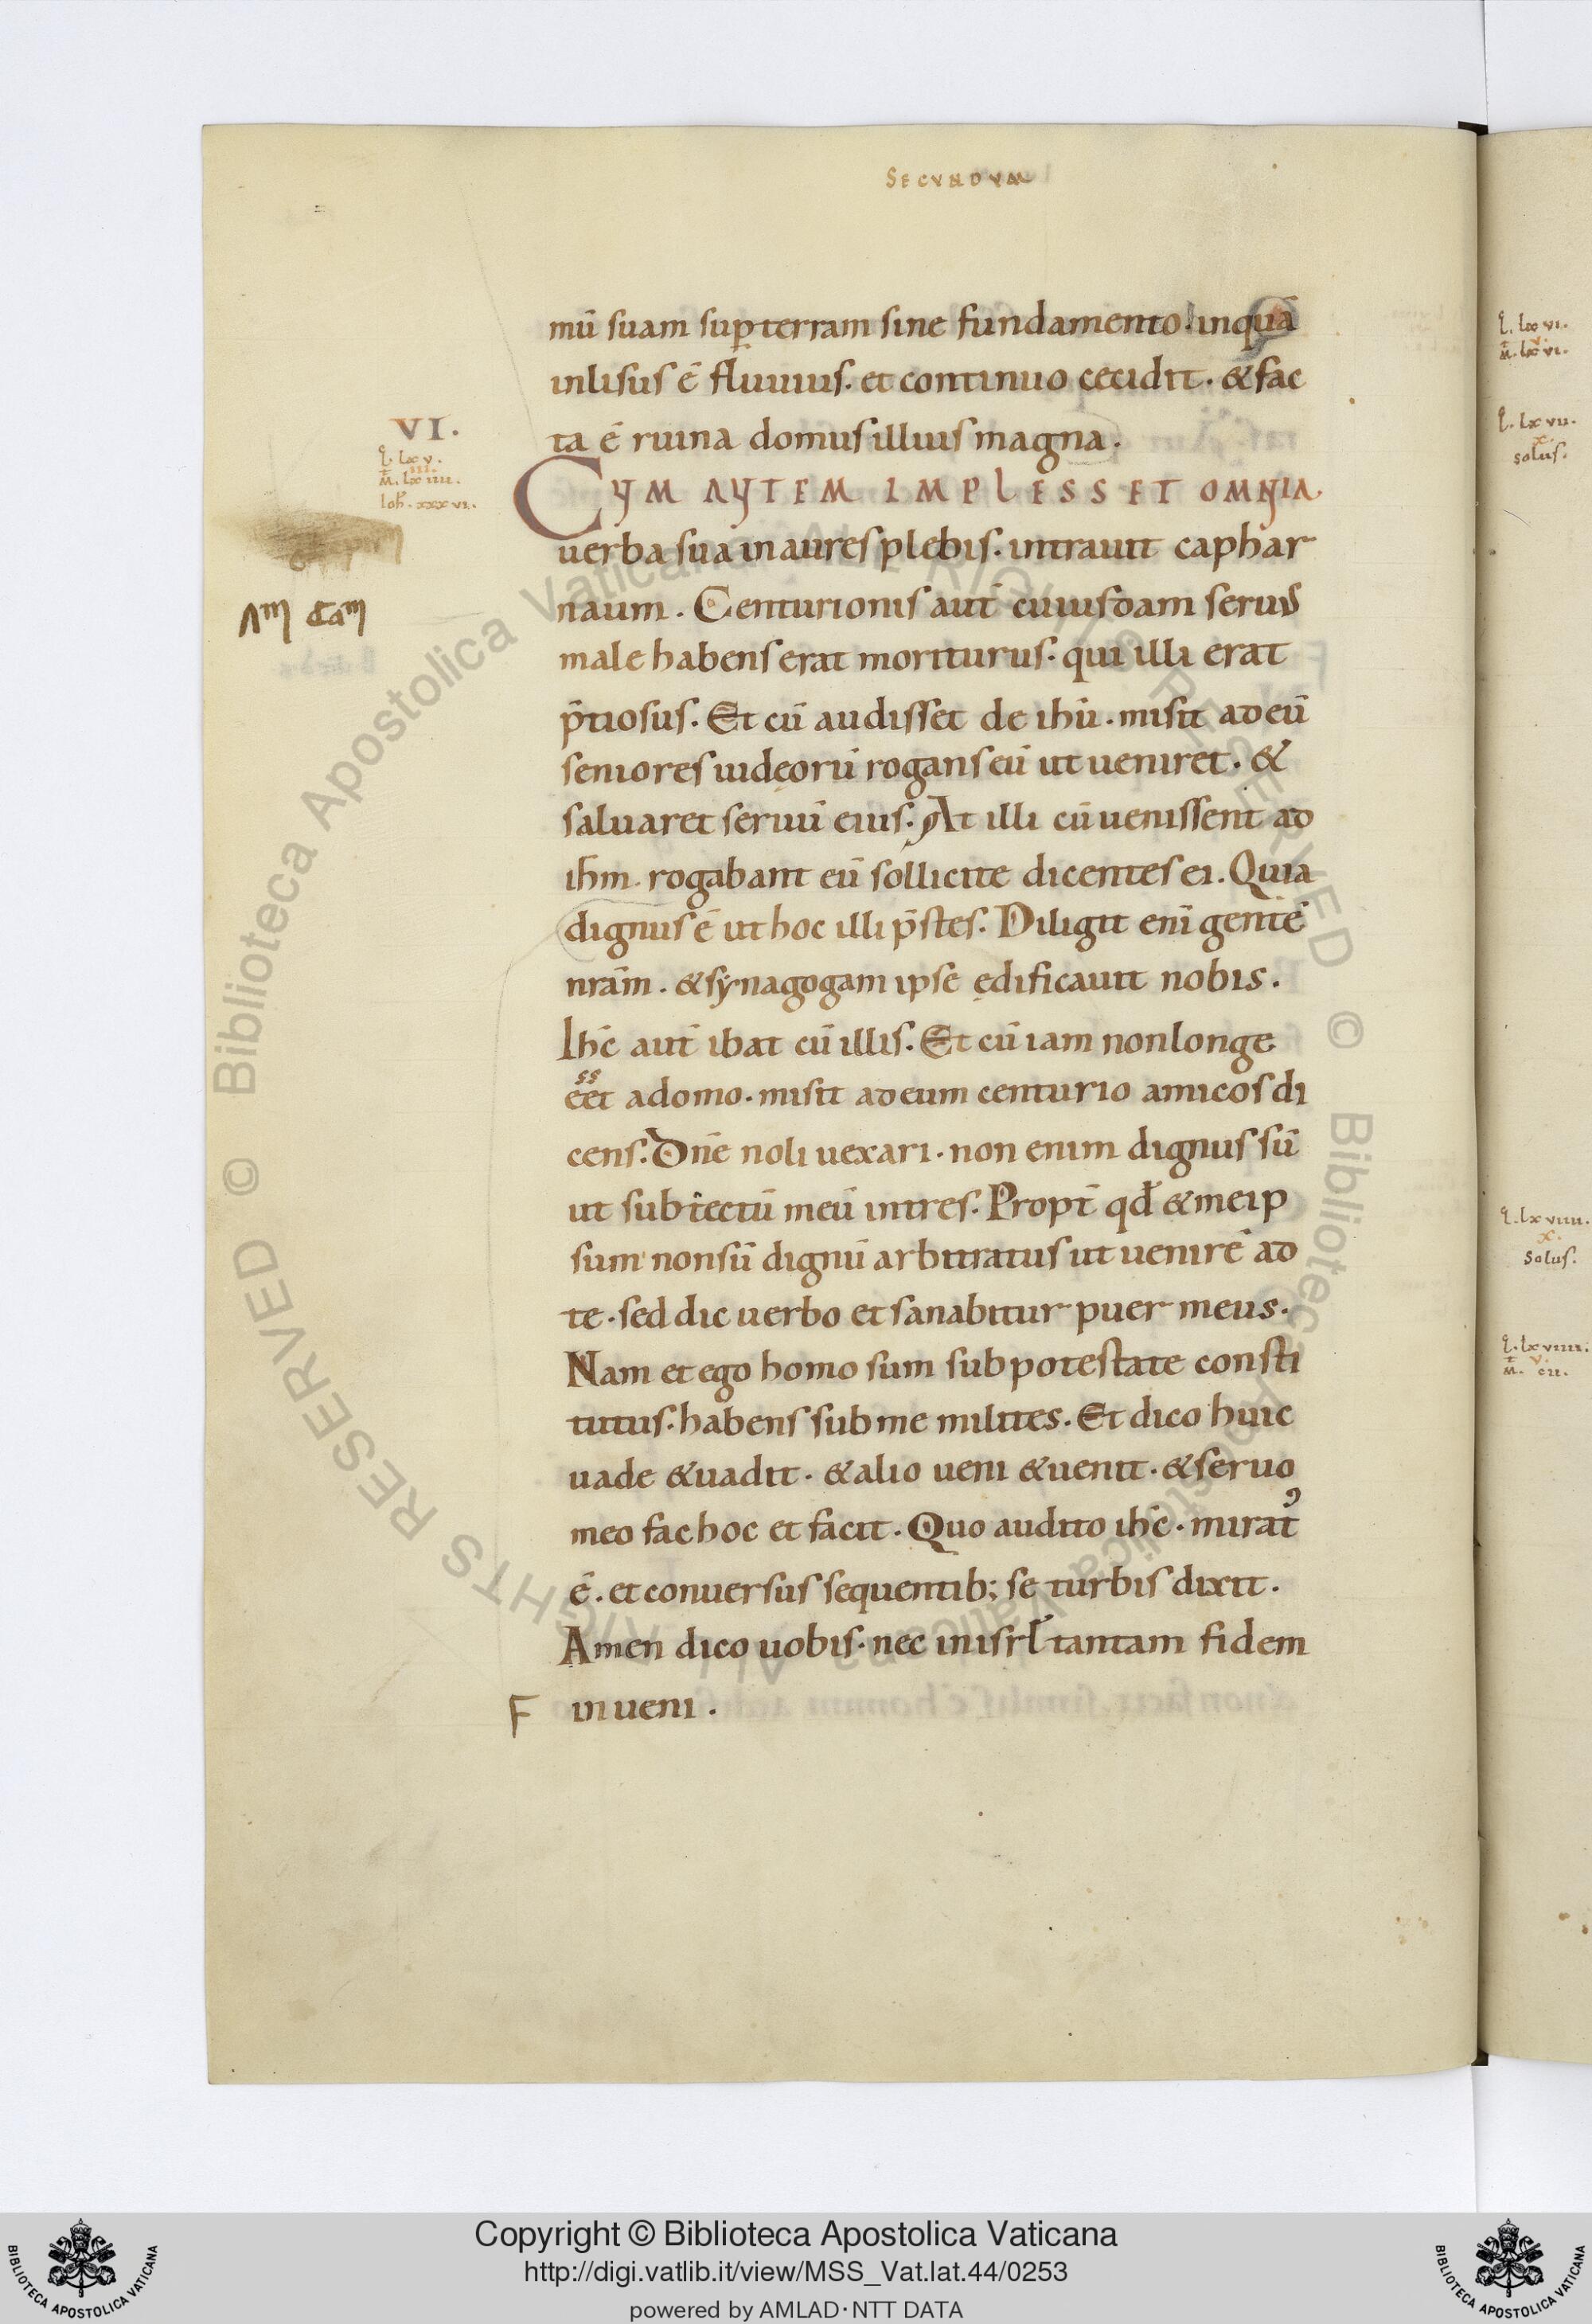 SECVNDVM
mū suam sup terram sine fundamento. inqua
inlisus ē fluuius. et continuo cecidit. & fac
ta ē ruina domus illius magna.
VI.
L. lxv.
III.
M. lxiiii.
Ioh. xxxvi.
CVM AVTEM IMPLESSET OMNIA
uerba sua in aures plebis. intrauit caphar
naum. Centurionis aut̄ cuiusdam seruus
male habens erat moriturus. qui illi erat
p̄tiosus. Et cū audisset de ihū. misit ad eū
seniores iudęorū rogans eū ut ueniret. &
saluaret seruū eius. At illi cū uenissent ad
ihm̄. rogabant eū sollicite dicentes ei. Quia
dignus ē ut hoc illi p̄stes. Diligit enī gentē
nrām. & synagogam ipse ędificauit nobis.
Ihc̄ aut̄ ibat cū illis. Et cū iam non longe
ēēt a domo. misit ad eum centurio amicos di
cens. Dn̄e noli uexari. non enim dignus sū
ut sub tectū meū intres. Propt̄ qđ & meip
sum non sū dignū arbitratus ut uenirē ad
te. sed dic uerbo et sanabitur puer meus.
Nam et ego homo sum sub potestate consti
tutus. habens sub me milites. Et dico huic
uade & uadit. & alio ueni & uenit. & seruo
meo fac hoc et facit. Quo audito ihc̄. mirat᾿
ē. et conuersus sequentib; se turbis dixit.
Amen dico uobis. nec in isrl̄ tantam fidem
F inueni.
L. lxvi.
v.
M. lxvi.
L. lxvii.
x.
solus.
L. lxviii.
x.
Solus.
L. lxviiii.
v.
M. cii.
© Biblioteca Apostolica Vaticana ALL RIGHTS RESERVED © Biblioteca Apostolica Vaticana ALL RIGHTS RESERVED
Copyright © Biblioteca Apostolica Vaticana
http://digi.vatlib.it/view/MSS_Vat.lat.44/0253
powered by AMLAD·NTT DATA
BIBLIOTECA APOSTOLICA VATICANA
BIBLIOTECA APOSTOLICA VATICANA